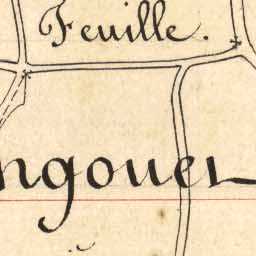 Feuille.
ngouer